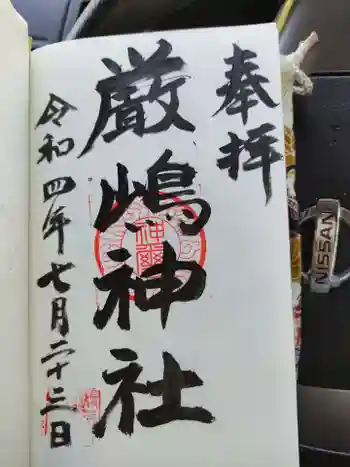 奉拝
厳嶋神社
令和四年七月二十三日
NISSAN